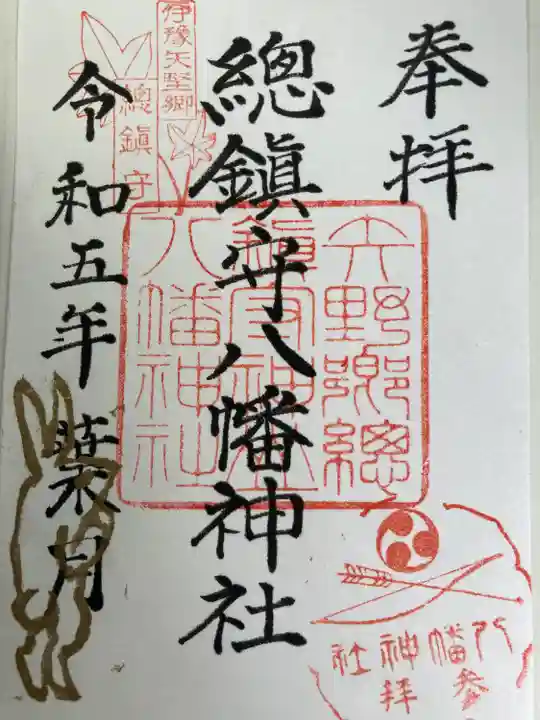 奉拝
總鎭守八幡神社
令和五年 月
伊豫矢野郷
總鎭守
矢野郷總
鎭守神
八幡神社
八幡神社
参拝